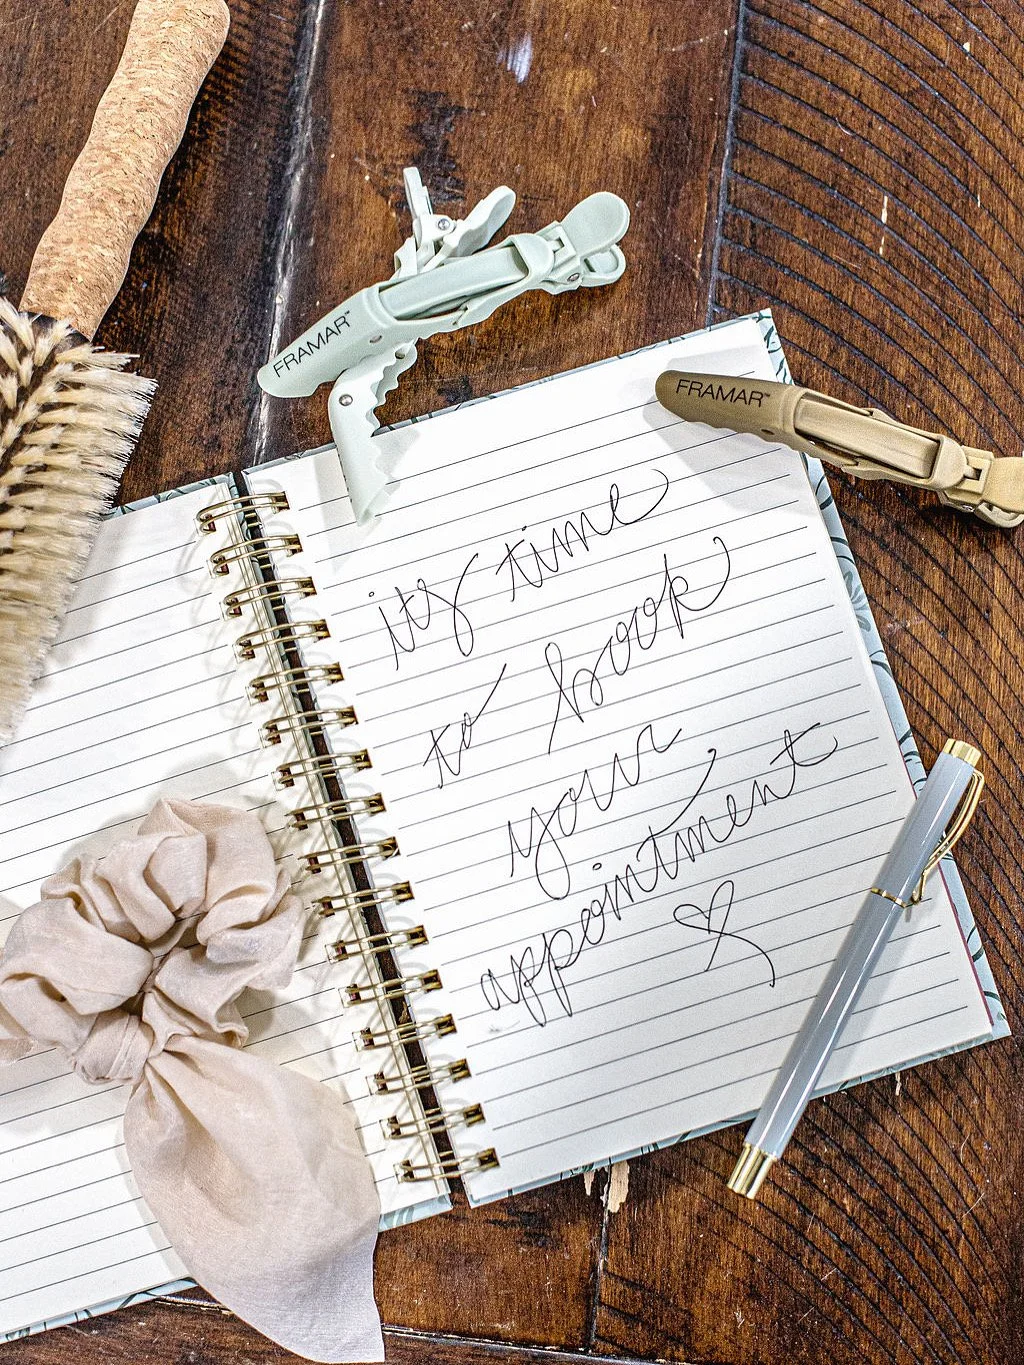 FRAMAR™
FRAMAR™
its time
to book
your
appointment